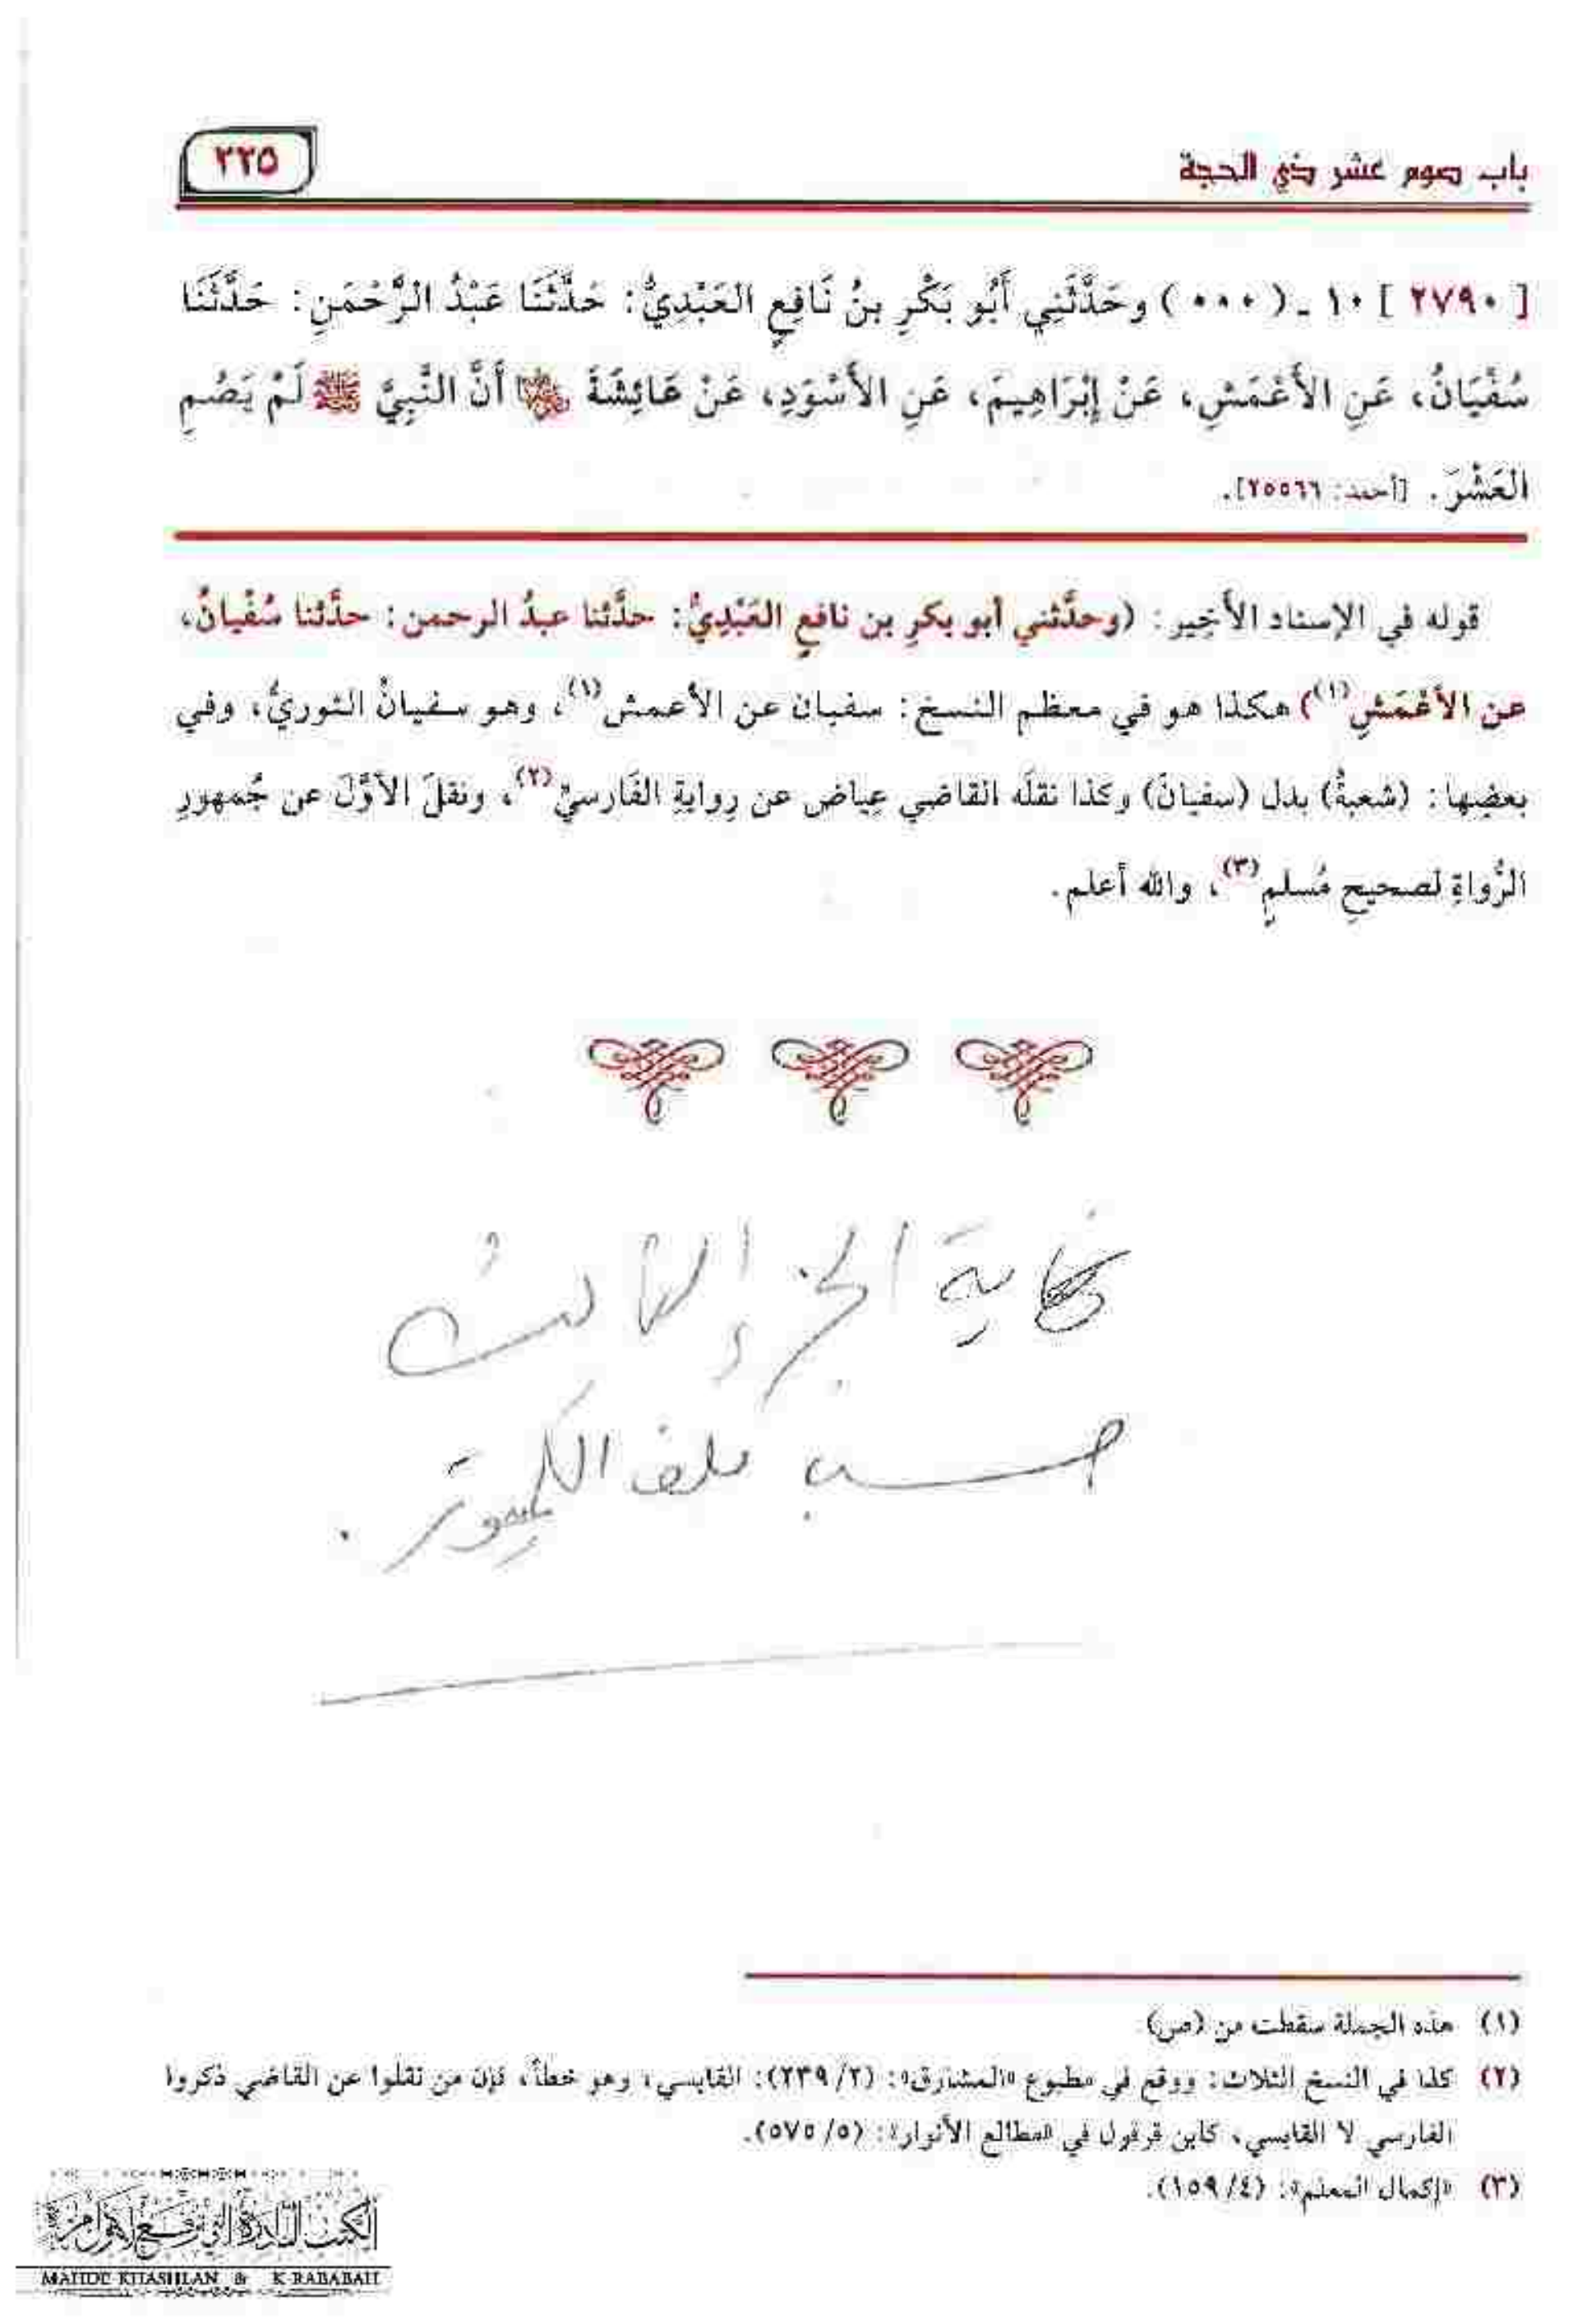 باب صوم عشر ذي الحجة
٢٢٥
[ ٢٧٩٠ ] ١٠ ـ ( ٠٠٠ ) وحَدَّثَنِي أَبُو بَكْرِ بنُ نَافِعٍ العَبْدِيُّ: حَدَّثَنَا عَبْدُ الرَّحْمَنِ: حَدَّثَنَا
سُفْيَانُ، عَنِ الأَعْمَشِ، عَنْ إِبْرَاهِيمَ، عَنِ الأَسْوَدِ، عَنْ عَائِشَةَ رضي الله عنها أَنَّ النَّبِيَّ ﷺ لَمْ يَصُمِ
العَشْرَ. [أحمد: ٢٥٥٦٦].
قوله في الإسناد الأخير: (وحدَّثني أبو بكرِ بن نافعٍ العَبْدِيُّ: حدَّثنا عبدُ الرحمن: حدَّثنا سُفْيانُ،
عن الأعْمَشِ(١)) هكذا هو في معظم النسخ: سفيان عن الأعمش(١)، وهو سفيانُ الثوريُّ، وفي
بعضِها: (شعبةُ) بدل (سفيانَ) وكذا نقلَه القاضي عِياض عن رِوايةِ الفَارسيِّ(٢)، ونقلَ الأوَّلَ عن جُمهورِ
الرُّواةِ لصحيحِ مُسلمٍ(٣)، والله أعلم.
نهاية الجزء الثالث
حسب ملف الكمبيوتر.
(١) هذه الجملة سقطت من (ص)
(٢) كذا في النسخ الثلاث: ووقع في مطبوع «المشارق»: (٢/ ٢٣٩): القابسي، وهو خطأ، فإن من نقلوا عن القاضي ذكروا
الفارسي لا القابسي، كابن قرقول في «مطالع الأنوار»: (٥/ ٥٧٥).
(٣) «إكمال المعلم»: (٤/ ١٥٩).
الكتب النادرة التي ترفع لأول مرة
MAHDE KHASHLAN & K RABABAH